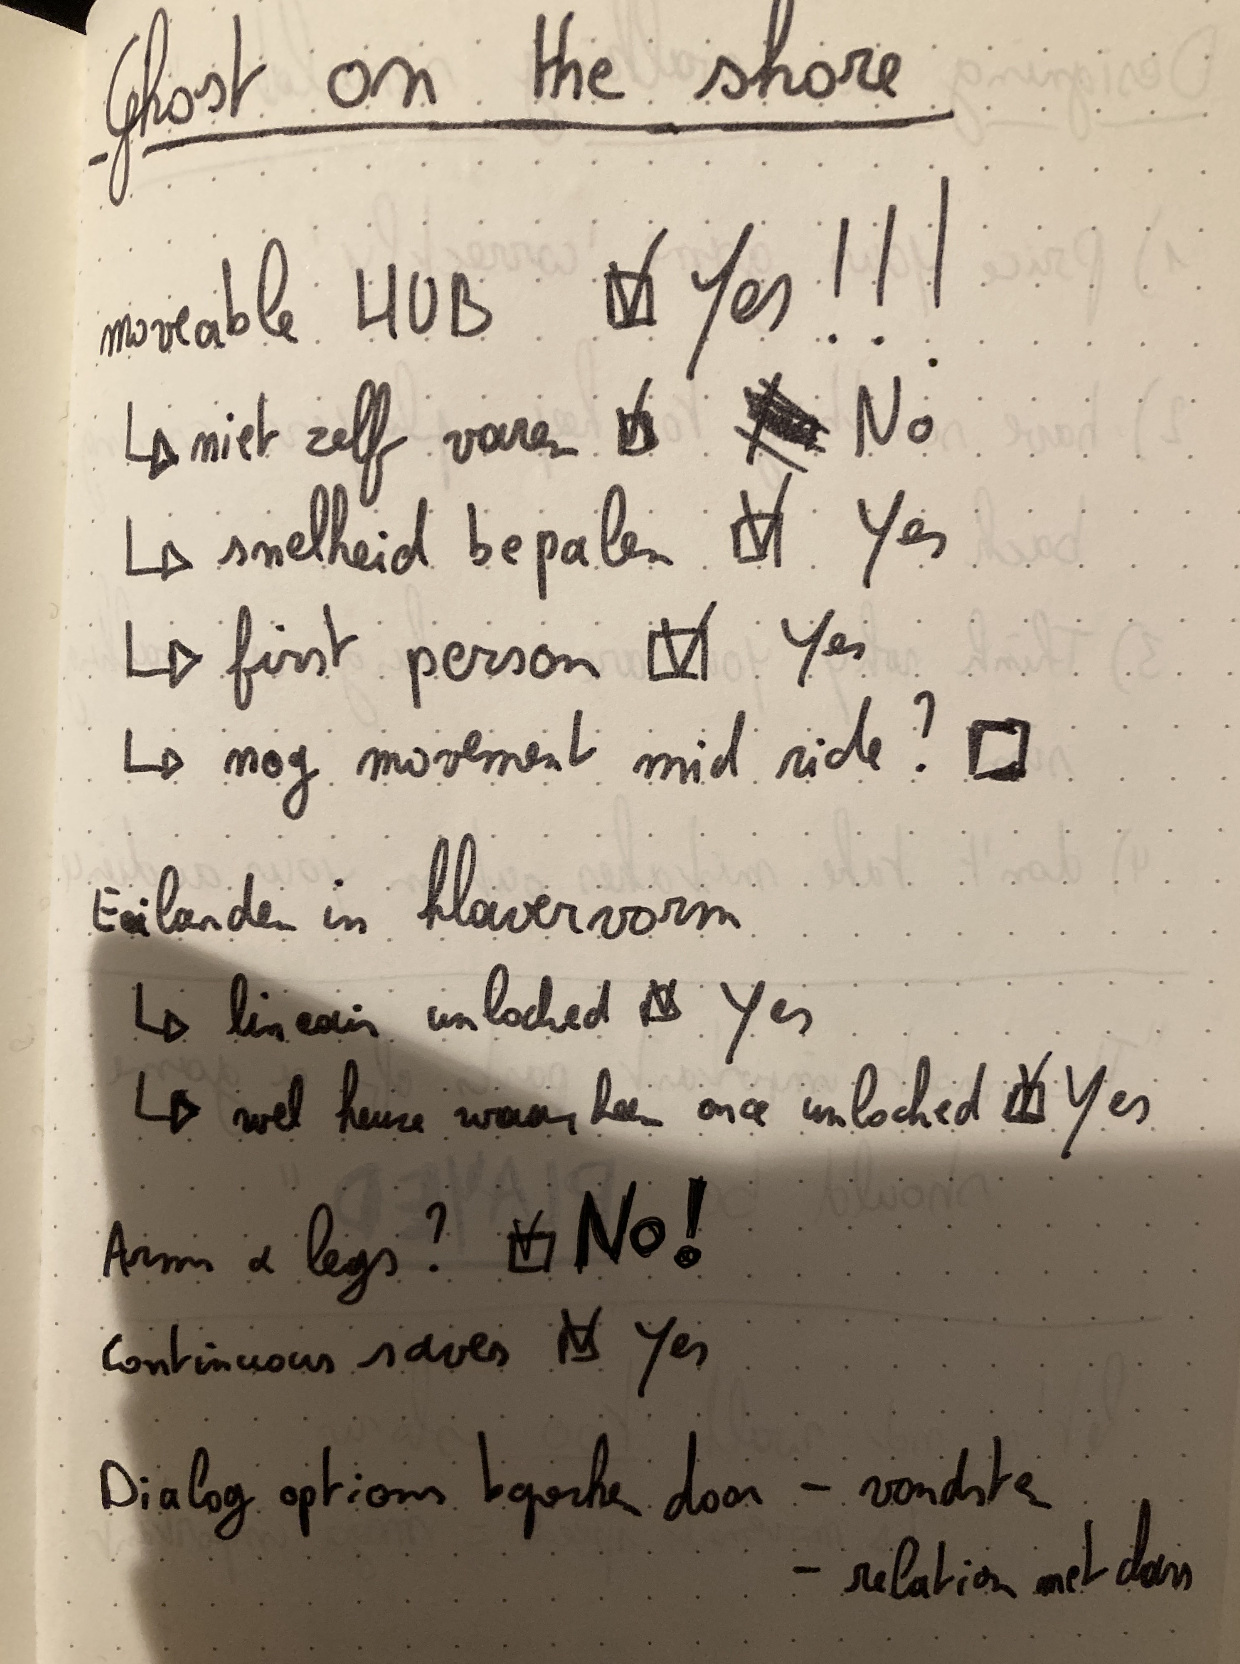 Ghost on the shore
moveable HUB ☑ Yes!!!
↳ niet zelf varen ☑ No
↳ snelheid bepalen ☑ Yes
↳ first person ☑ Yes
↳ nog movement mid ride? ☐
Eilanden in klavervorm
↳ lineair unlocked ☑ Yes
↳ wel keuze waarheen once unlocked ☑ Yes
Arms & legs? ☑ No!
Continuous saves ☑ Yes
Dialog options door - vondsten
- relation met